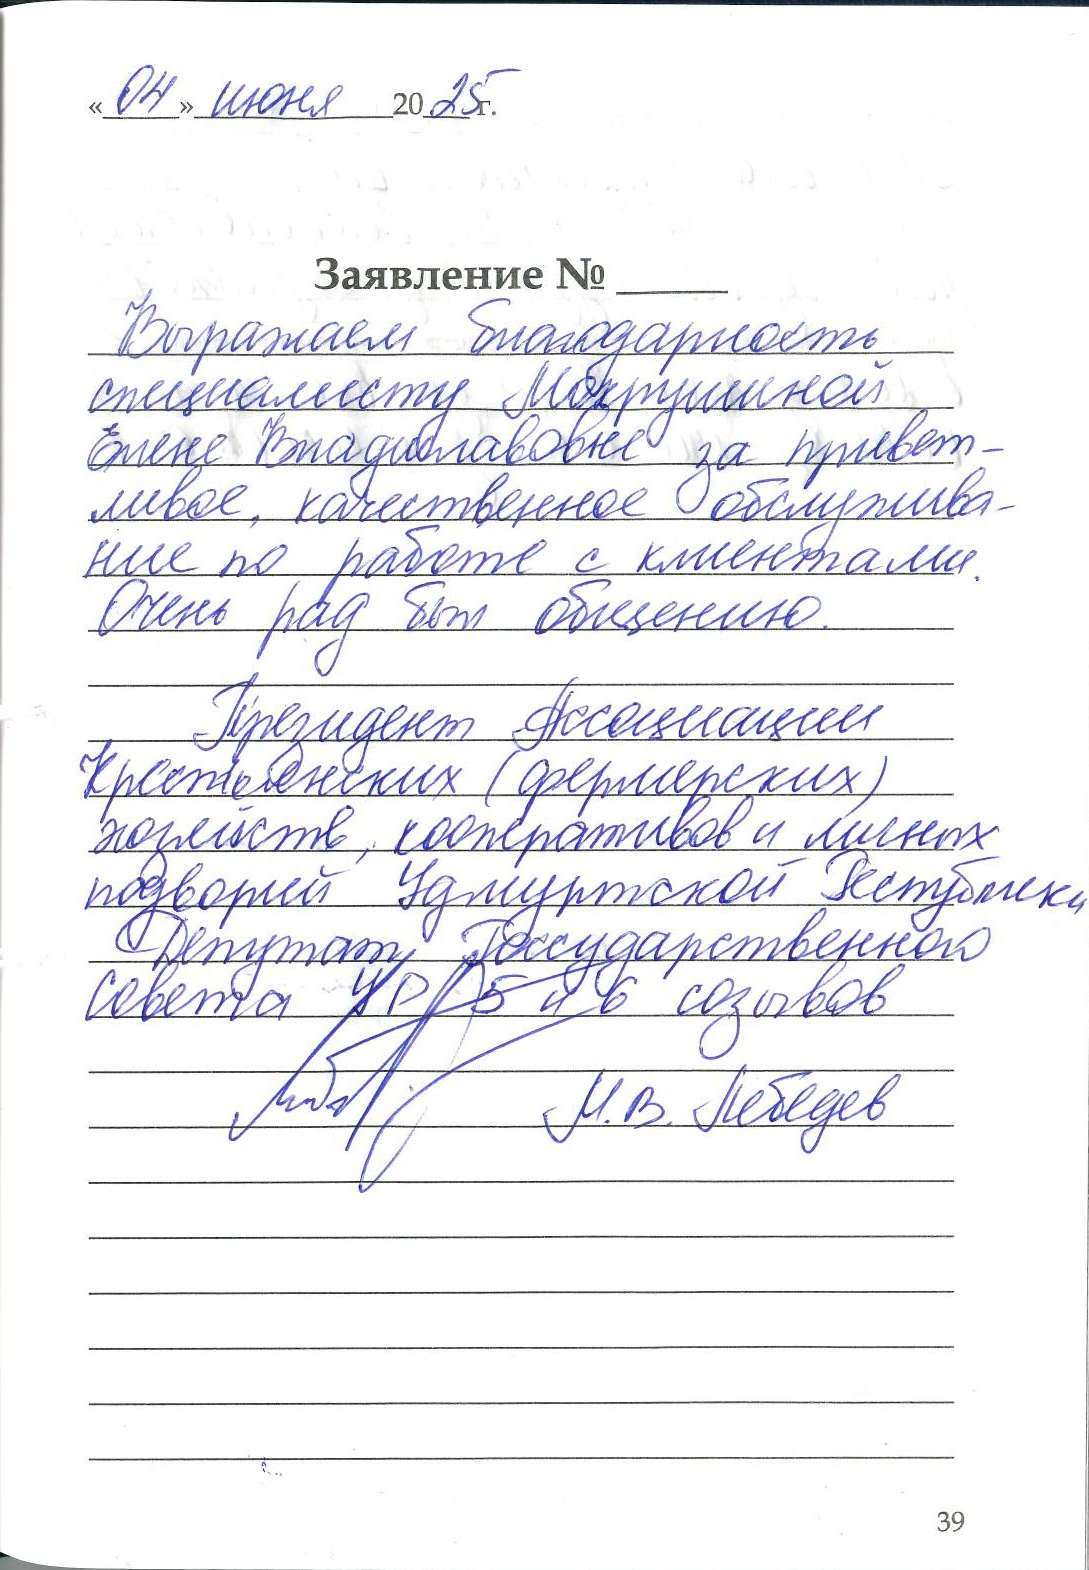 «04» июня 2025 г.
Заявление № ____
Выражаем благодарность
специалисту Мокрушиной
Елене Владиславовне за привет-
ливое, качественное обслужива-
ние по работе с клиентами.
Очень рад был общению.
Президент Ассоциации
Крестьянских (фермерских)
хозяйств, кооперативов и личных
подворий Удмуртской Республики
Депутат Государственного
Совета УР 5 и 6 созывов
М.В. Лебедев
39